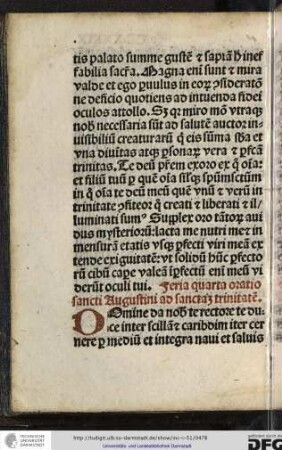 tis palato summe gustē ⁊ sapiā h̄ inef
fabilia sacr̄a. Magna eni᷑ sunt ⁊ mira
valde et ego ꝑuulus in eoꝝ ꝯsideratōe
ne deficio quotiens ad intuenda fidei
oculos attollo.
nob̄ necessaria sūt ad salutē auctor in-
uisibiliū creaturarū q̄ eis sūma
vna diuītas atqꝫ ꝑsonaꝝ vera ⁊ ꝑfc̄a
trinitas. Te deū pr̄em exoro ex q̄ oīa:
et filiū tuū ꝑ quē oīa sīlqꝫ spūmsctūm
in q̄ oīa te deū meū quē vnū ⁊ verū in
trinitate ꝯfiteor q̄ creati ⁊ liberati ⁊ il/
luminati sumꝰ Suplex oro tātoꝝ aui
dus mysterioruꝫ: lacta me nutri me: in
mensurā etatis vsqꝫ ꝑfecti viri meā ex
tende exiguitatē: vt solidū hūc ꝑfecto
rū cibū cape valeā īꝑfectū eni᷑ meū vi
derūt oculi tui. Feria quarta oratio
sancti Augustini ad sanctāꝫ trinitatē.
Domine da nob̄ te rectore te du-
ce inter scillā ⁊ caribdim iter cer
nere ꝑ mediū et integra naui et saluis
http://tudigit.ulb.tu-darmstadt.de/show/inc-i-51/0478
Universitäts- und Landesbibliothek Darmstadt
TECHNISCHE
UNIVERSITÄT
DARMSTADT
DFG